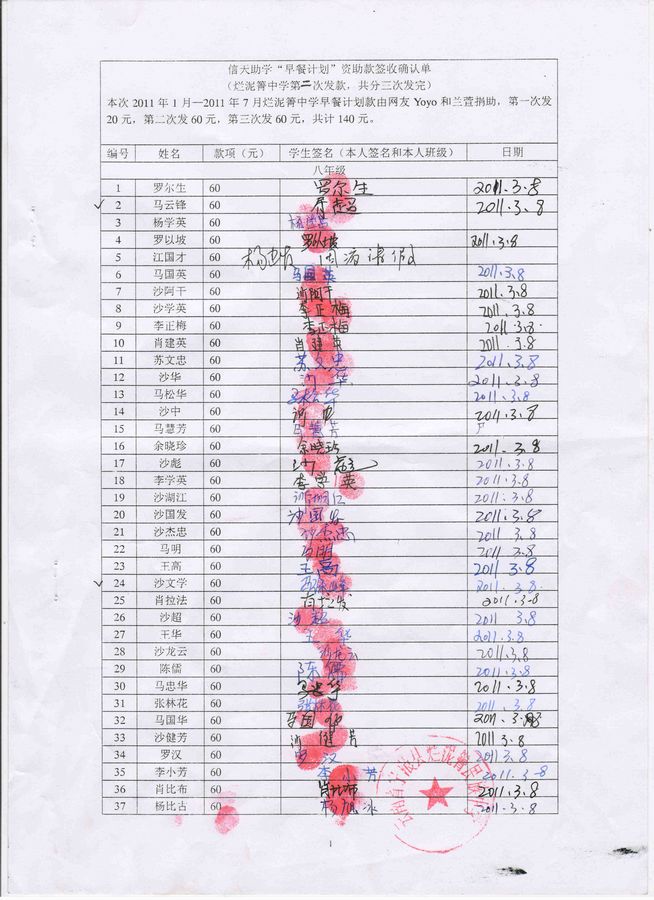 信天助学“早餐计划”资助款签收确认单
(烂泥箐中学第二次发款，共分三次发完)
本次 2011 年 1 月—2011 年 7 月烂泥箐中学早餐计划款由网友 Yoyo 和兰萱捐助，第一次发
20 元，第二次发 60 元，第三次发 60 元，共计 140 元。
编号 姓名 款项（元） 学生签名（本人签名和本人班级） 日期
八年级
1 罗尔生 60 罗尔生 2011.3.8
2 马云锋 60 2011.3.8
3 杨学英 60
4 罗以坡 60 2011.3.8
5 江国才 60
6 马国英 60 马国英 2011.3.8
7 沙阿干 60 沙阿干 2011.3.8
8 沙学英 60 李正梅 2011.3.8
9 李正梅 60 李正梅 2011.3.8
10 肖建英 60 肖建英 2011.3.8
11 苏文忠 60 苏文忠 2011.3.8
12 沙华 60 沙华 2011.3.8
13 马松华 60 马松华 2011.3.8
14 沙中 60 沙中 2011.3.8
15 马慧芳 60 马慧芳
16 余晓珍 60 余晓珍 2011.3.8
17 沙彪 60 沙彪 2011.3.8
18 李学英 60 李学英 2011.3.8
19 沙湖江 60 沙湖江 2011.3.8
20 沙国发 60 沙国发 2011.3.8
21 沙杰忠 60 沙杰忠 2011.3.8
22 马明 60 马明 2011.3.8
23 王高 60 王高 2011.3.8
24 沙文学 60 2011.3.8
25 肖拉法 60 2011.3.8
26 沙超 60 沙超 2011 3.8
27 王华 60 王华 2011.3.8
28 沙龙云 60 沙龙云 2011.3.8
29 陈儒 60 陈儒 2011.3.8
30 马忠华 60 马忠华 2011.3.8
31 张林花 60 张林花 2011.3.8
32 马国华 60 马国华 2011.3.8
33 沙健芳 60 沙健芳 2011.3.8
34 罗汉 60 罗汉 2011.3.8
35 李小芳 60 李小芳 2011.3.8
36 肖比布 60 肖比布 2011.3.8
37 杨比古 60 杨旭冰 2011.3.8
1